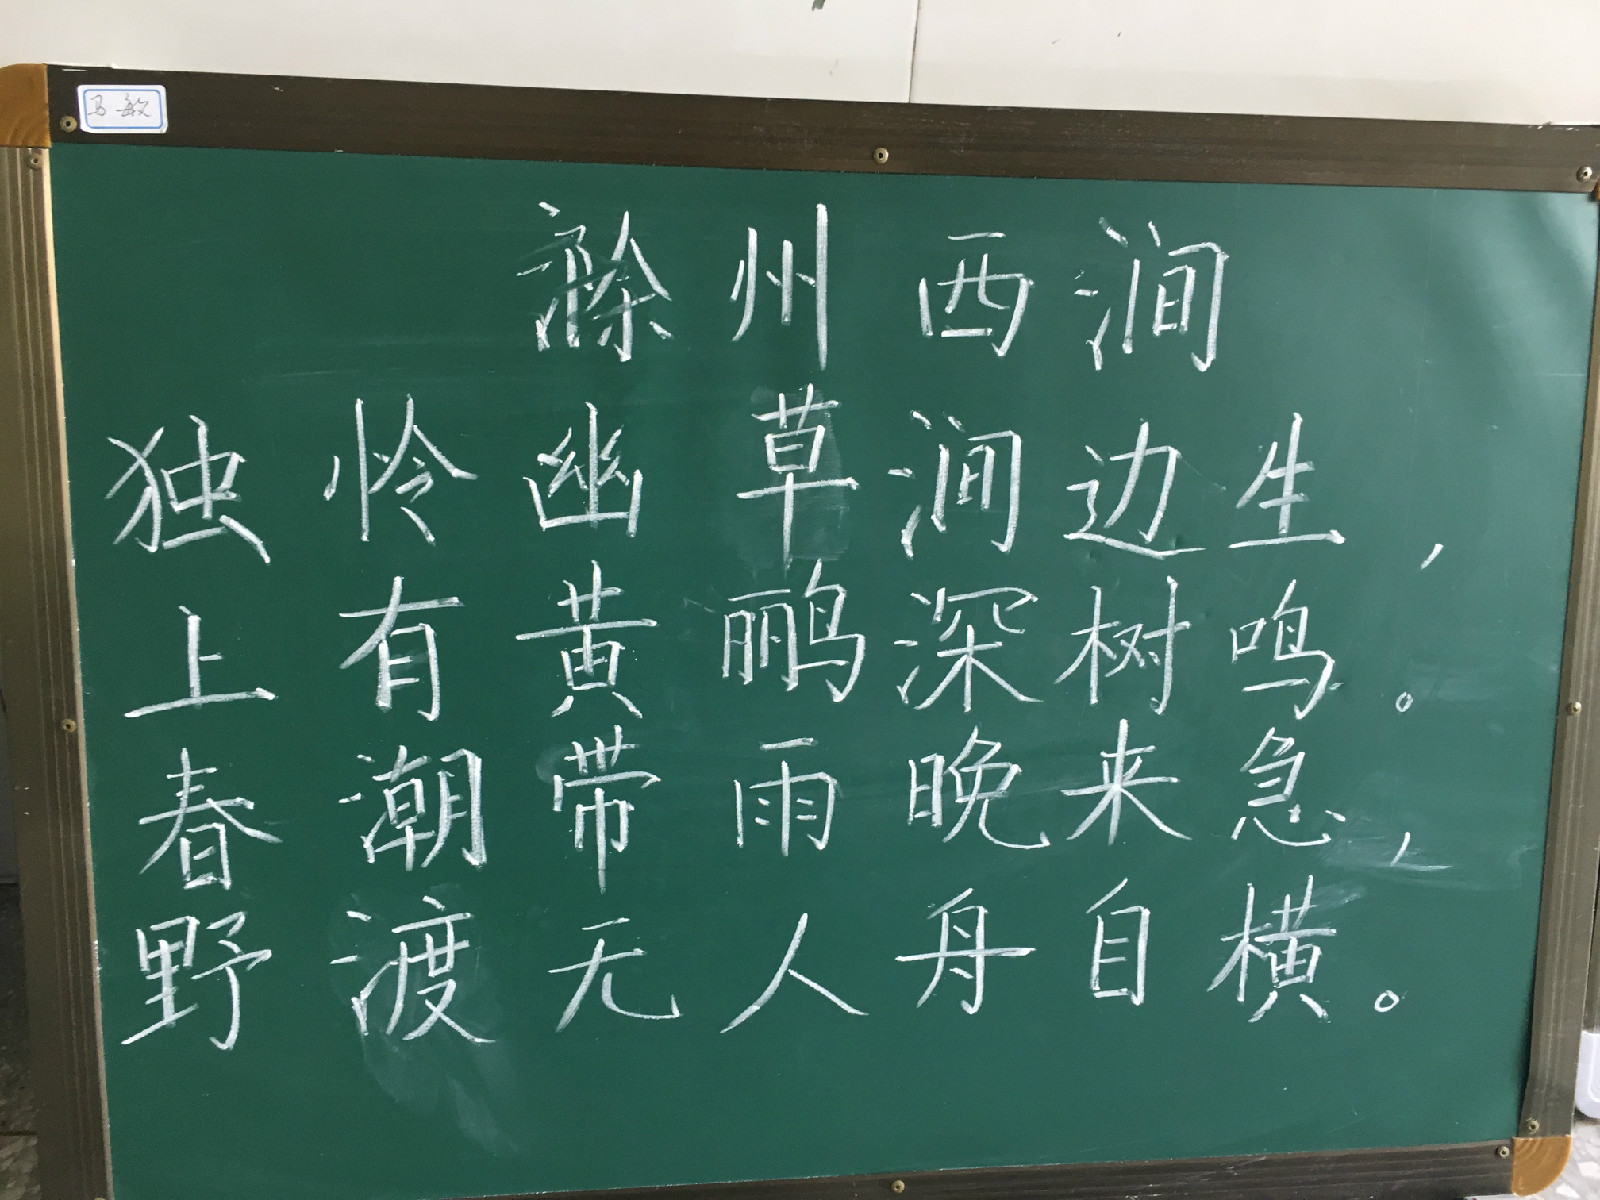 马敏
滁州西涧
独怜幽草涧边生，
上有黄鹂深树鸣。
春潮带雨晚来急，
野渡无人舟自横。